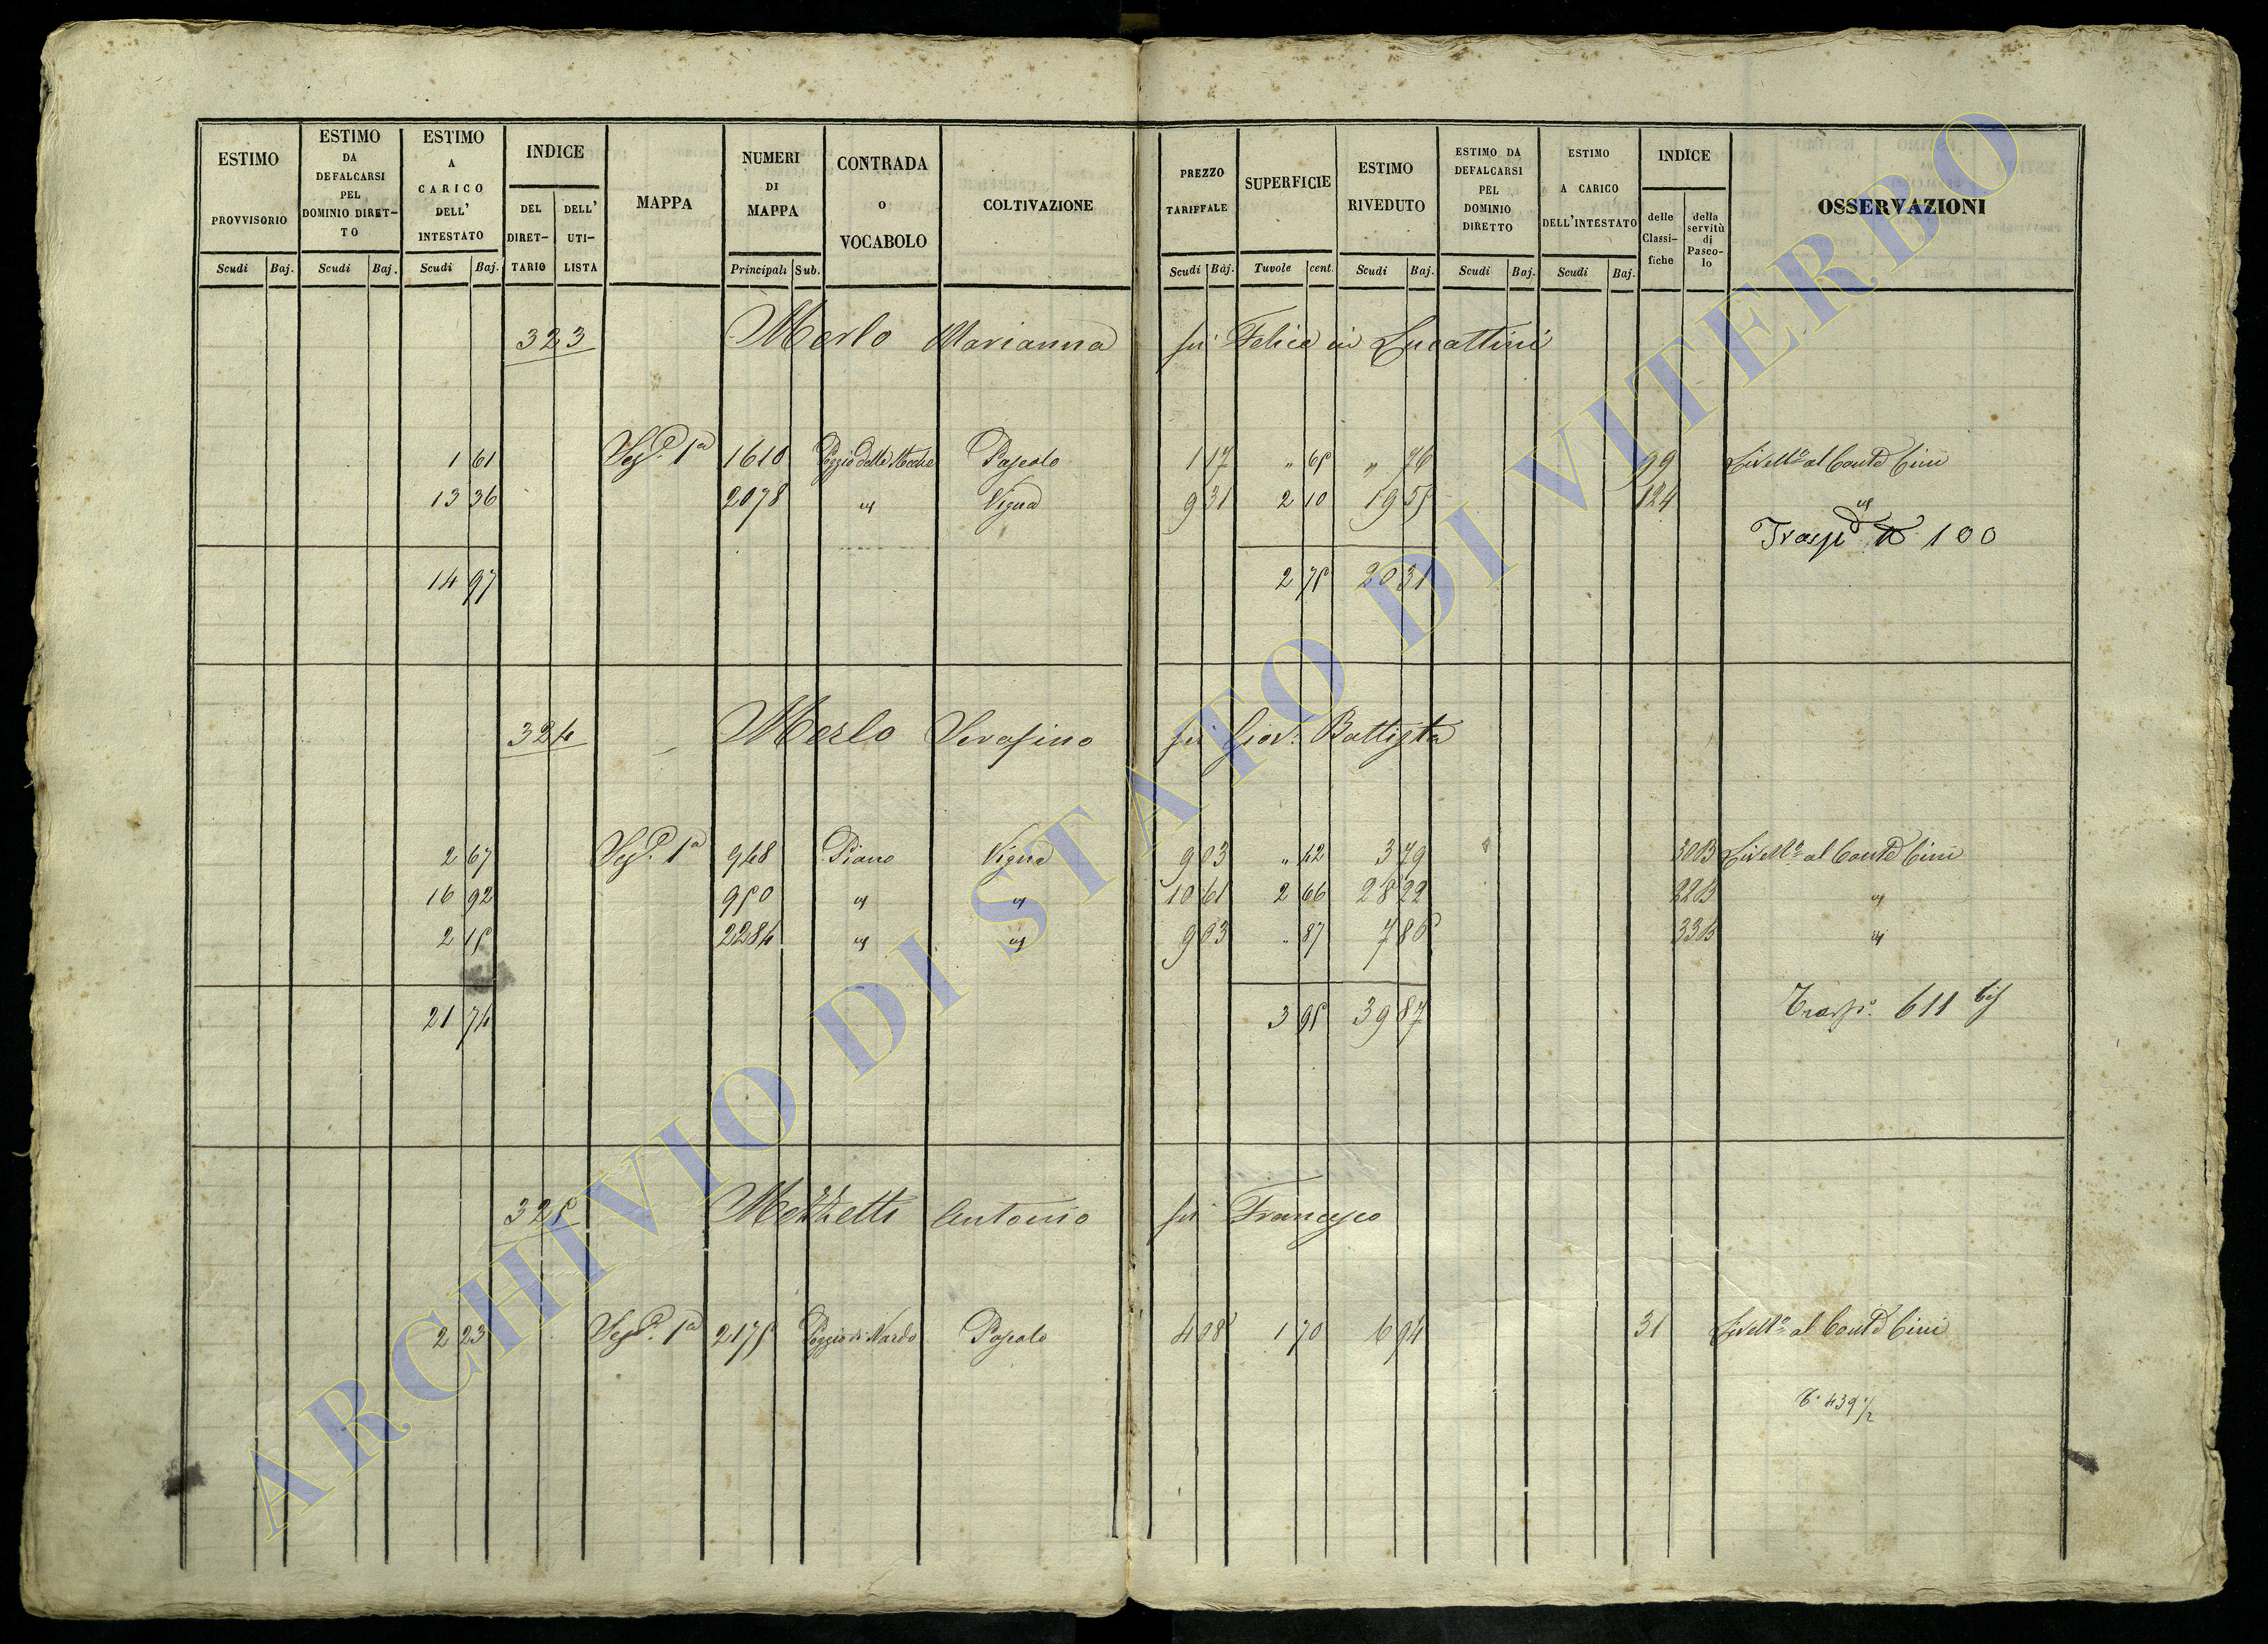 ESTIMO PROVVISORIO
Scudi Baj.
ESTIMO DA DEFALCARSI PEL DOMINIO DIRET-TO
Scudi Baj.
ESTIMO A CARICO DELL' INTESTATO
Scudi Baj.
INDICE
DEL DIRET-TARIO
DELL' UTI-LISTA
MAPPA
NUMERI DI MAPPA
Principali Sub.
CONTRADA o VOCABOLO
COLTIVAZIONE
PREZZO TARIFFALE
Scudi Baj.
SUPERFICIE
Tavole cent.
ESTIMO RIVEDUTO
Scudi Baj.
ESTIMO DA DEFALCARSI PEL DOMINIO DIRETTO
Scudi Baj.
ESTIMO A CARICO DELL'INTESTATO
Scudi Baj.
INDICE
delle Classi-fiche
della servitù di Pasco-lo
OSSERVAZIONI
323 Merlo Marianna fu Felice in Lucattini
1 61 Sez.e 1a 1610 Poggio delle Pascolo 1 17 " 65 " 76 99 Livello al Conte Cini
13 36 2078 " Vigna 9 31 2 10 19 55 124 "
Trasp 100
14 97 2 75 20 31
324 Merlo Serafino fu Giov. Battista
2 67 Sez.e 1a 948 Piano Vigna 9 03 " 42 3 79 30B Livello al Conte Cini
16 92 950 " " 10 61 2 66 28 22 22B "
2 15 2284 " " 9 03 " 87 7 86 33B "
21 74 3 95 39 87
Trasp. 611 bis
325 Mezzetti Antonio fu Francesco
2 23 Sez.e 1a 2175 Poggio di Nardo Pascolo 4 08 1 70 6 94 31 Livello al Conte Cini
T. 439 1/2
ARCHIVIO DI STATO DI VITERBO